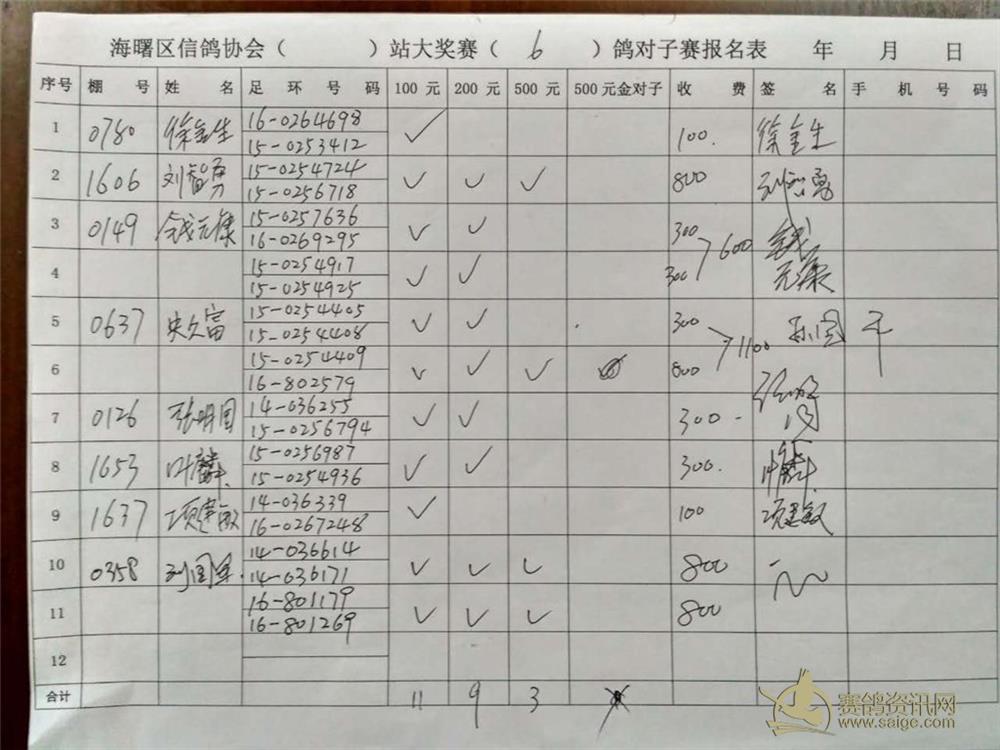 海曙区信鸽协会（ ）站大奖赛（ 6 ）鸽对子赛报名表 年 月 日
序号 棚号 姓名 足环号码 100元 200元 500元 500元金对子 收费 签名 手机号码
1 0780 徐金生 16-0264698 ✓ 100. 徐金生
15-0253412
2 1606 刘智勇 15-0254724 ✓ ✓ ✓ 800 刘智勇
15-0256718
3 0149 钱元康 15-0257636 ✓ ✓ 300 >600 钱
16-0269295
4 15-0254917 ✓ ✓ 300 元康
15-0254925
5 0637 史久富 15-0254405 ✓ ✓ 300 >1100
15-0254408
6 15-0254409 ✓ ✓ ✓ 800
16-802579
7 0126 张明国 14-036255 ✓ ✓ 300
15-0256794
8 1653 叶麟 15-0256987 ✓ ✓ 300. 叶麟
15-0254936
9 1637 项建敏 14-036339 ✓ 100 项建敏
16-0267248
10 0358 刘国军 14-036614 ✓ ✓ ✓ 800
14-036171
11 16-801179 ✓ ✓ ✓ 800
16-801269
12
合计 11 9 3
赛鸽资讯网
www.saige.com